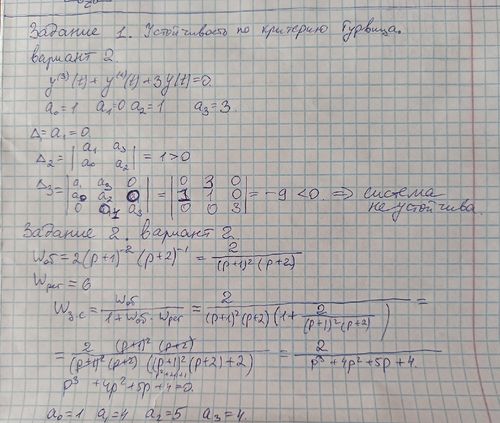 Задание 1. Устойчивость по критерию Гурвица.
вариант 2.
y⁽³⁾(t) + y⁽¹⁾(t) + 3y(t) = 0
a₀ = 1 a₁ = 0 a₂ = 1 a₃ = 3.
Δ = a₁ = 0.
Δ₂ = | a₁ a₃ ; a₀ a₂ | = 1 > 0
Δ₃ = | a₁ a₃ 0 ; a₀ a₂ 0 ; 0 a₁ a₃ | = | 0 3 0 ; 1 1 0 ; 0 0 3 | = -9 < 0. ⇒ система неустойчива.
Задание 2. вариант 2.
Wоб = 2(p+1)⁻²(p+2)⁻¹ = 2 / ((p+1)²(p+2))
Wрег = 6
Wз.с = Wоб / (1 + Wоб · Wрег) = 2 / ((p+1)²(p+2)(1 + 2 / ((p+1)²(p+2)))) =
= 2 (p+1)²(p+2) / ((p+1)²(p+2)((p+1)²(p+2)+2)) = 2 / (p³+4p²+5p+4.)
p³ + 4p² + 5p + 4 = 0.
a₀ = 1 a₁ = 4 a₂ = 5 a₃ = 4.